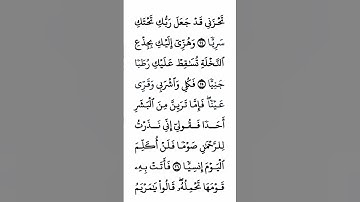 تَحْزَنِي قَدْ جَعَلَ رَبُّكِ تَحْتَكِ
سَرِيًّا ﴿٢٤﴾ وَهُزِّيٓ إِلَيْكِ بِجِذْعِ
ٱلنَّخْلَةِ تُسَٰقِطْ عَلَيْكِ رُطَبًا
جَنِيًّا ﴿٢٥﴾ فَكُلِي وَٱشْرَبِي وَقَرِّي
عَيْنًاۖ فَإِمَّا تَرَيِنَّ مِنَ ٱلْبَشَرِ
أَحَدًا فَقُولِيٓ إِنِّي نَذَرْتُ
لِلرَّحْمَٰنِ صَوْمًا فَلَنْ أُكَلِّمَ
ٱلْيَوْمَ إِنسِيًّا ﴿٢٦﴾ فَأَتَتْ بِهِۦ
قَوْمَهَا تَحْمِلُهُۥۖ قَالُوا۟ يَٰمَرْيَمُ